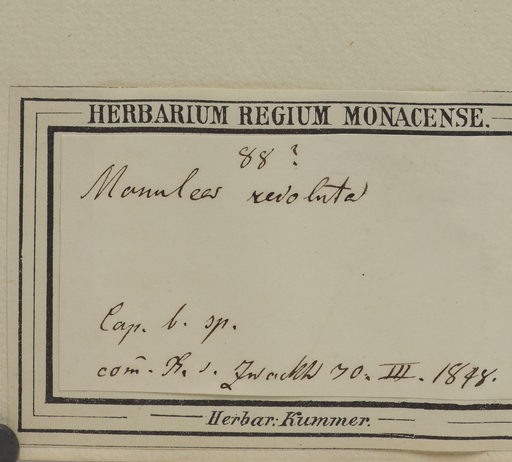 HERBARIUM REGIUM MONACENSE.
88 ?
Manulea revoluta
Cap. b. sp.
com̄. Fr. s. Zwackh 30. III. 1848.
Herbar: Kummer.